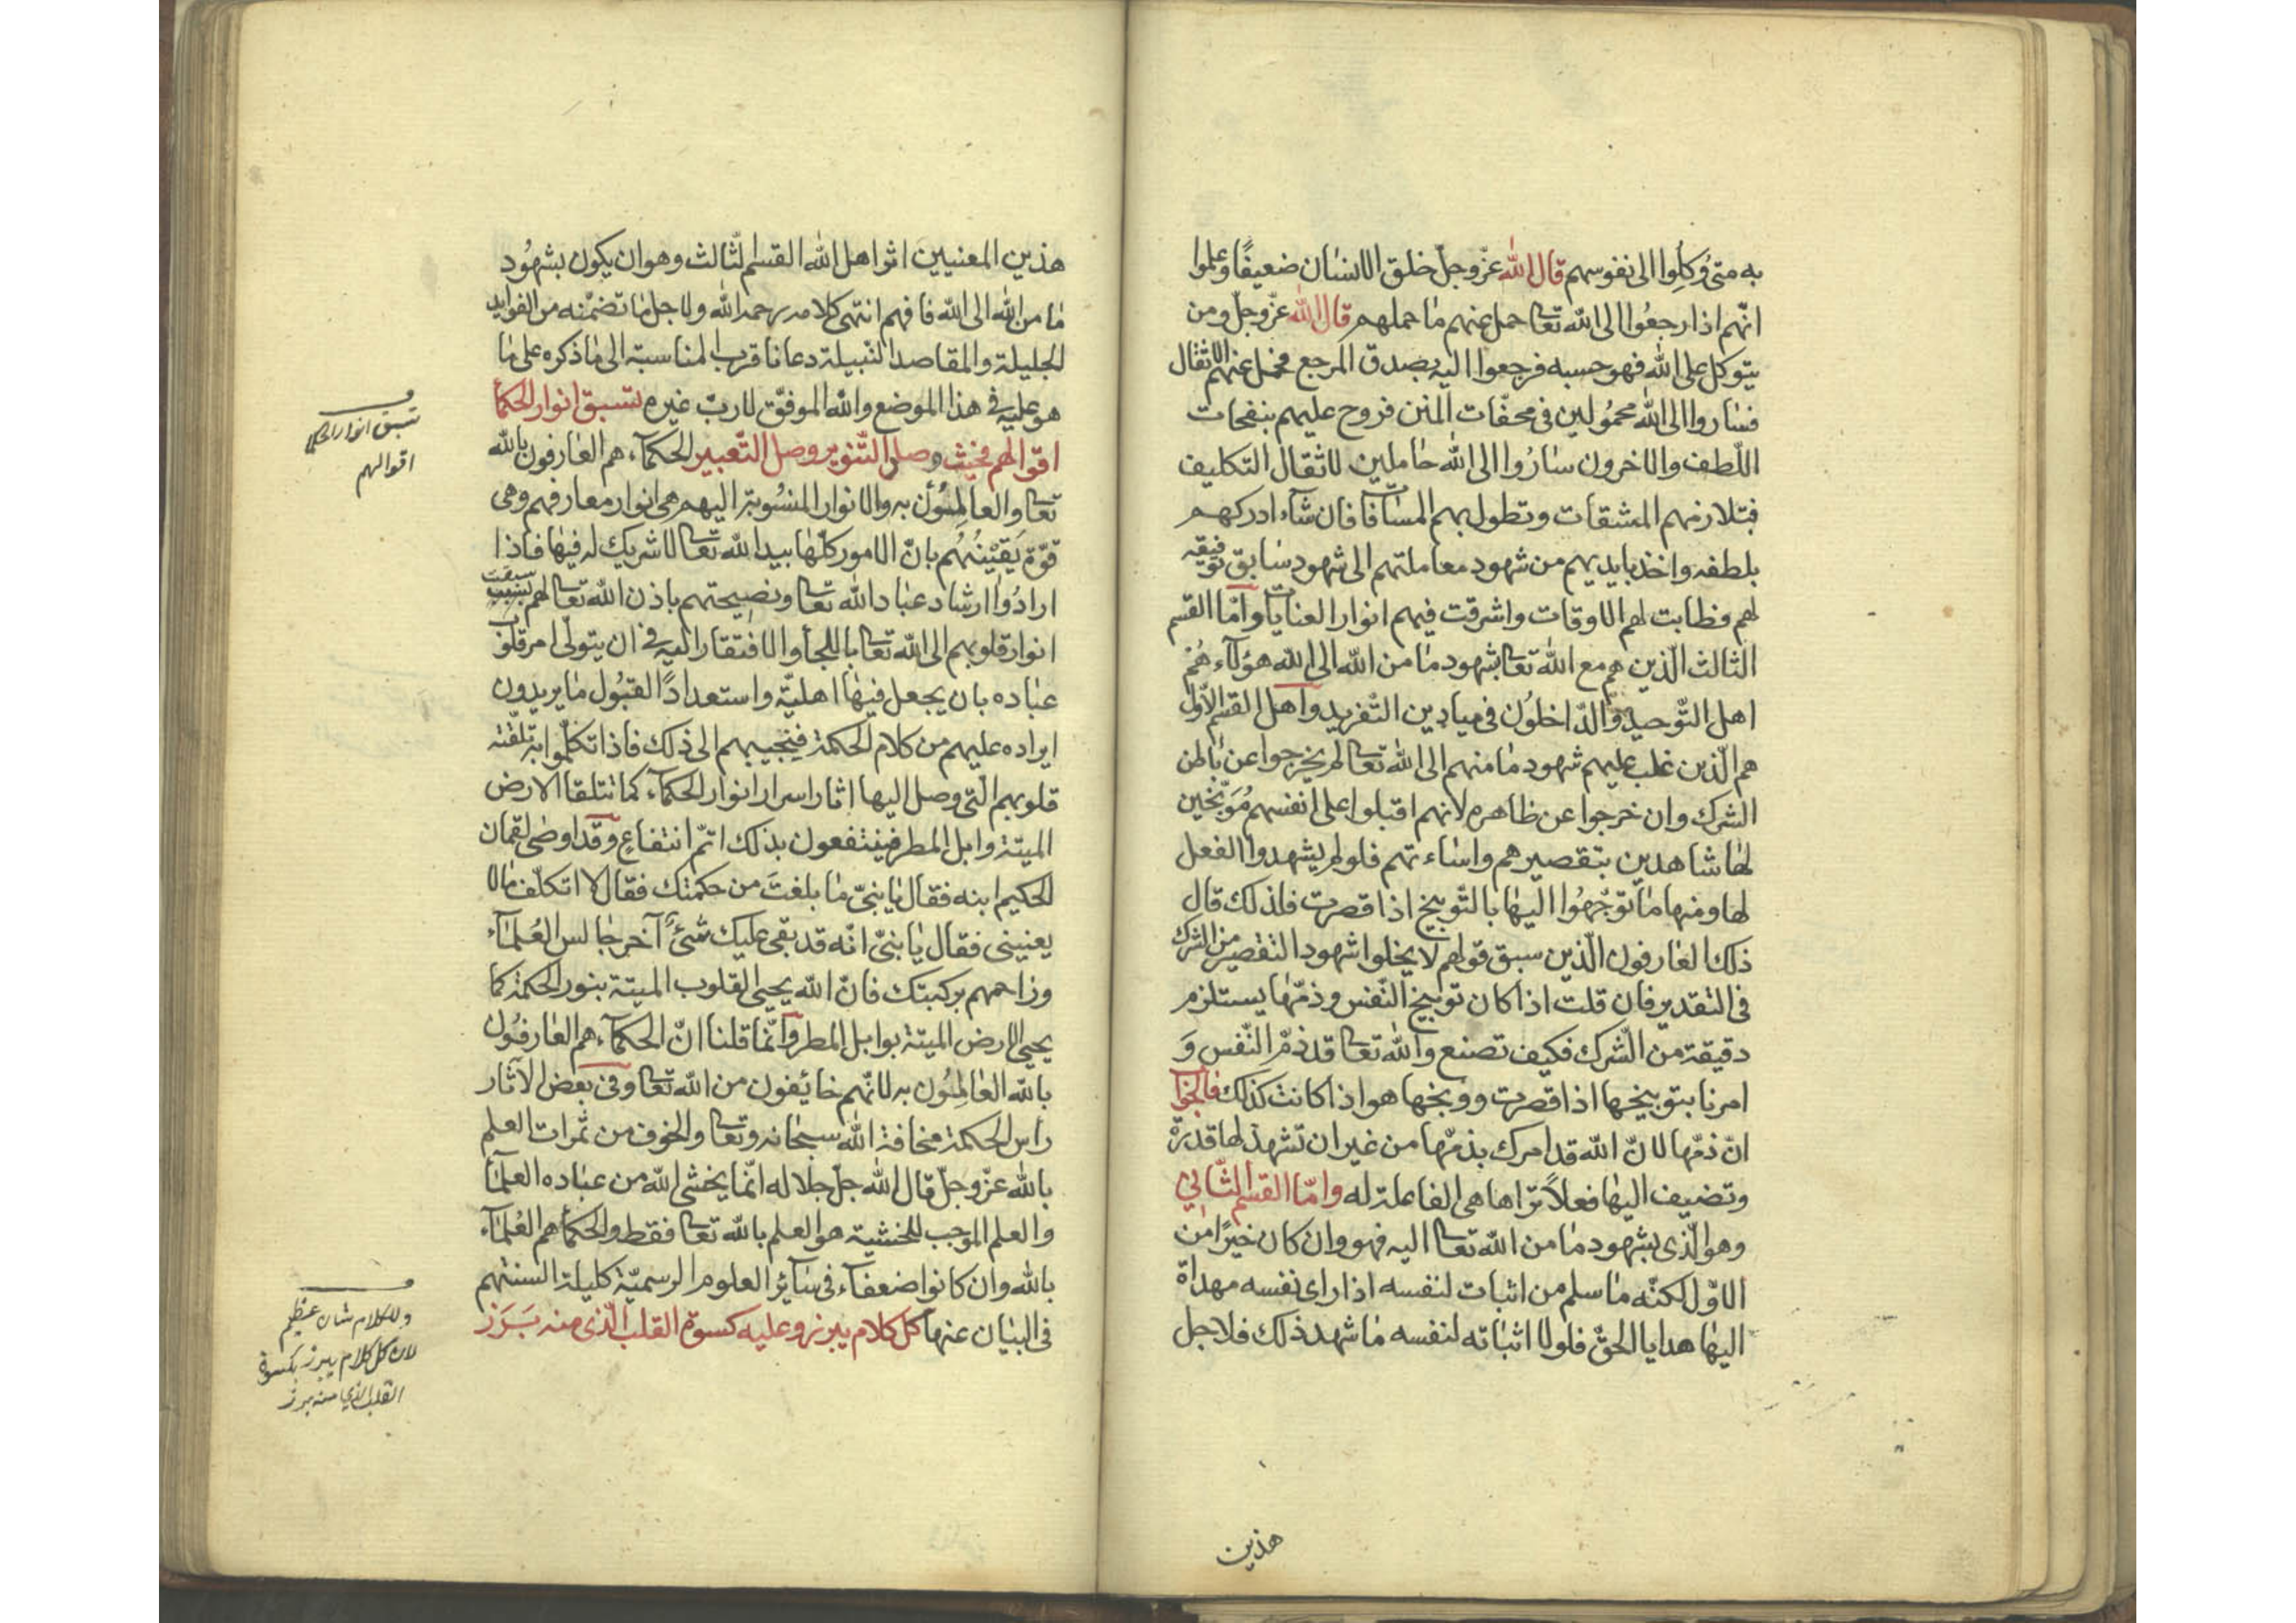 به متى وكلوا الى نفوسهم قال الله عزّ وجلّ خلق الانسان ضعيفًا وعلموا
انّهم اذا رجعُوا الى الله تعالى حمل عنهم ما حملهم قال الله عزّ وجلّ ومن
يتوكل على الله فهو حسبه فرجعوا اليه بصدق المرجع فحمل عنهم الاثقال
فسَاروا الى الله محمُولين فى محفّات المنن فروح عليهم بنفحات
اللّطف والاخرون سَارُوا الى الله حَاملين لاثقال التكليف
فتلازمهم المشقات وتطول بهم المسَافات فان شآء ادركهم
بلطفه واخذ بايديهم من شهود معاملتهم الى شهود سَابق توفيقه
لهم فطابت لهم الاوقات واشرقت فيهم انوار العنايات وامّا القسم
الثالث الّذين هم مع الله تعالى بشهود مَا من الله الى الله هوُلآء هُمْ
اهل التّوحيد والدّاخلُون فى ميادين التّفريد واهل القسم الاوّل
هم الّذين غلب عليهم شهود مَا منهم الى الله تعالى لم يخرجوا عن باطن
الشرك وان خرجوا عن ظاهره لانهم اقبلوا على انفسهم مُوَبّخين
لهَا شاهدين بتقصيرهم واسَاءتهم فلو لم يشهدوا الفعل
لها ومنها مَا توَجّهُوا اليهَا بالتّوبيخ اذا قصرت فلذلك قال
ذلك العَارفون الّذين سبق قولهم لا يخلوا شهود التقصير من الشرك
فى التقدير فان قلت اذا كان توبيخ النّفس وذمّها يستلزم
دقيقة من الشّرك فكيف تصنع والله تعالى قد ذمّ النّفس وَ
امرنا بتوبيخها اذا قصرت ووبخها هو اذا كانت كذلك فالجوا
انّ ذمّها لانّ الله قد امرك بذمّها من غير ان تشهد لها قدرَة
وتضيف اليهَا فعلاً تراها هى الفاعلة له وامّا القسم الثّانِي
وهو الّذى بشهود مَا من الله تعالى اليه فهو وان كان خيرًا من
الاوّل لكنّه مَا سلم من اثبات لنفسه اذا راى نفسه مهداة
اليهَا هدايا الحقّ فلولا اثبَاته لنفسه مَا شهد ذلك فلاجل
هذين
هذين المعنيين اثر اهل الله القسم الثّالث وهو ان يكون بشهُود
مَا من الله الى الله فافهم انتهى كلامه رحمه الله ولاجل مَا تضمّنه من الفوايد
الجليلة والمقاصد النّبيلة دعانا قرب المناسبة الى مَا ذكره على مَا
هو عليه فى هذا الموضع والله الموفّق لا ربّ غيره تسبق انوار الحكمآ
اقوالهم فحيث وصل التّنوير وصل التّعبير الحكمآء هم العَارفون بالله
تعالى والعالِمُون به والانوار المنسُوبة اليهم هى انوار معارفهم وهى
قوّة يَقيْنُهُم بانّ الامور كلّهَا بيد الله تعالى لا شريك له فيهَا فاذا
ارادُوا ارشاد عبَاد الله تعالى ونصيحتهم باذن الله تعالى لهم سبقت
انوار قلوبهم الى الله تعالى باللجأ والافتقار اليه فى ان يتولّى امر قلوب
عبَاده بان يجعل فيهَا اهليّة واستعدادًا لقبُول مَا يريدون
ايراده عليهم من كلام الحكمة فيجيبهم الى ذلك فاذا تكلّموا به تلقّته
قلوبهم الّتى وصل اليها اثار اسرار انوار الحكمآء كما تتلقا الارض
الميتة وابل المطر فينتفعون بذلك اتمّ انتفاعٍ وقد اوصَى لقمان
الحكيم ابنه فقال يَا بنىّ مَا بلغتَ من حكمتك فقال لا اتكلّف مَا لا
يعنينى فقال يَا بنىّ انّه قد بقى عليك شئٌ آخر جَالس العُلمَآء
وزاحمهم بركبتك فانّ الله يحيى القلوب الميتة بنور الحكمة كما
يحيى الارض الميتة بوابل المطر وانّما قلنا انّ الحكمآء هم العَارفُون
بالله العَالِمُون به لانّهم خائفون من الله تعالى وفى بعض الآثار
رأس الحكمة مخافة الله سبحَانه وتعالى والخوف من ثمرات العلم
بالله عزّ وجلّ قال الله جلّ جلاله انّما يخشى الله من عبَاده العلمَآ
والعلم الموجب للخشية هو العلم بالله تعالى فقط والحكمآ هم العُلمَآء
بالله وان كانوا ضعفآء فى سَآئر العلوم الرسميّة كليلة السنتهم
فى البيَان عنهَا كل كلام يبرز وعليه كسوة القلب الّذى منه بَرَزَ
تسبق انوار الحكما
اقوالهم
وللكلام شان عظيم
لان كل كلام يبرز بكسوة
القلب الذي منه برز